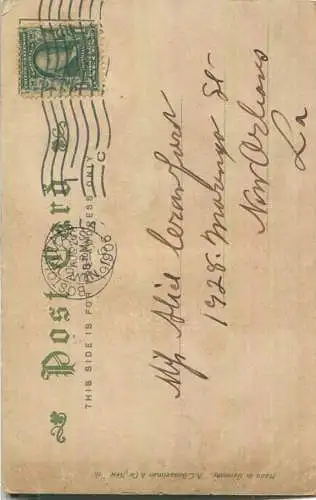 Post Card
THIS SIDE IS FOR THE ADDRESS ONLY
1906
Miss Alice Cranford
1928. Marengo St-
New Orleans
La
Made in Germany. A.C. Bosselman & Co., New